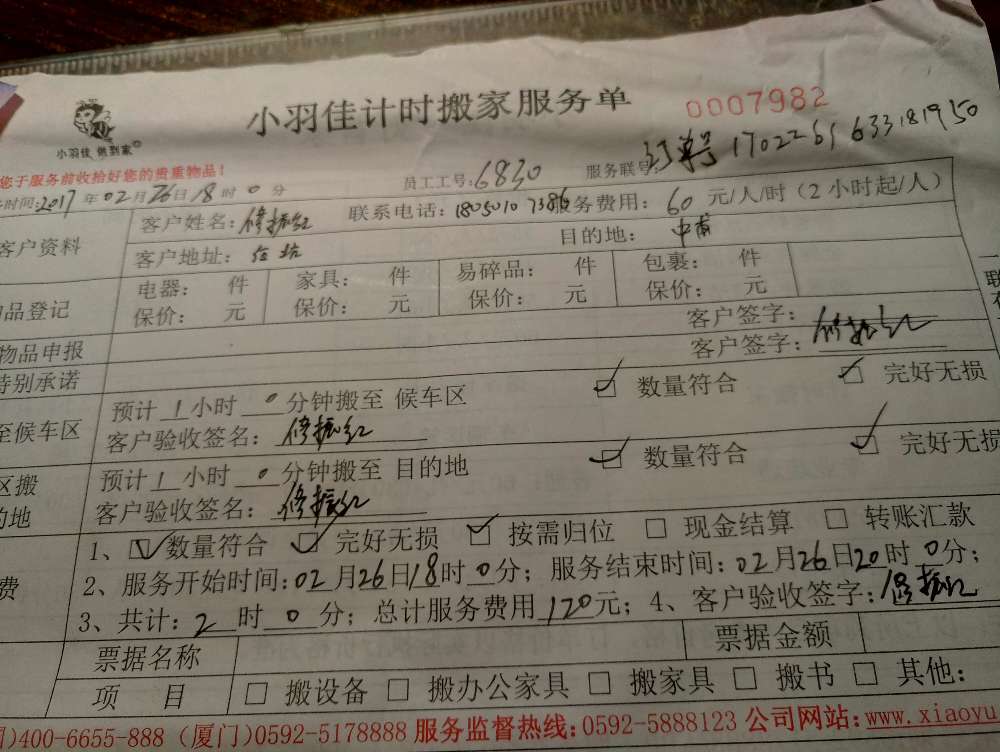 小羽佳计时搬家服务单 0007982
小羽佳 做到家
您于服务前收拾好您的贵重物品!
员工工号:6830 服务联号: 订单号 1702261633181950
时间:2017年02月26日18时0分
客户资料 客户姓名: 修振红 联系电话:18050107386 服务费用: 60 元/人/时(2小时起/人)
客户地址: 目的地: 中甫
品登记 电器: 件 家具: 件 易碎品: 件 包裹: 件
保价: 元 保价: 元 保价: 元 保价: 元
物品申报 客户签字:
特别承诺 客户签字: 修振红
至候车区 预计 1 小时 0 分钟搬至 候车区 数量符合 完好无损
客户验收签名: 修振红
区搬 预计 1 小时 0 分钟搬至 目的地 数量符合 完好无损
的地 客户验收签名: 修振红
费 1、 数量符合 完好无损 按需归位 现金结算 转账汇款
2、服务开始时间:02月26日18时0分; 服务结束时间:02月26日20时0分;
3、共计:2时0分; 总计服务费用120元; 4、客户验收签字: 修振红
票据名称 票据金额
项 目 搬设备 搬办公家具 搬家具 搬书 其他:
)400-6655-888 (厦门)0592-5178888 服务监督热线:0592-5888123 公司网站:www.xiaoyu